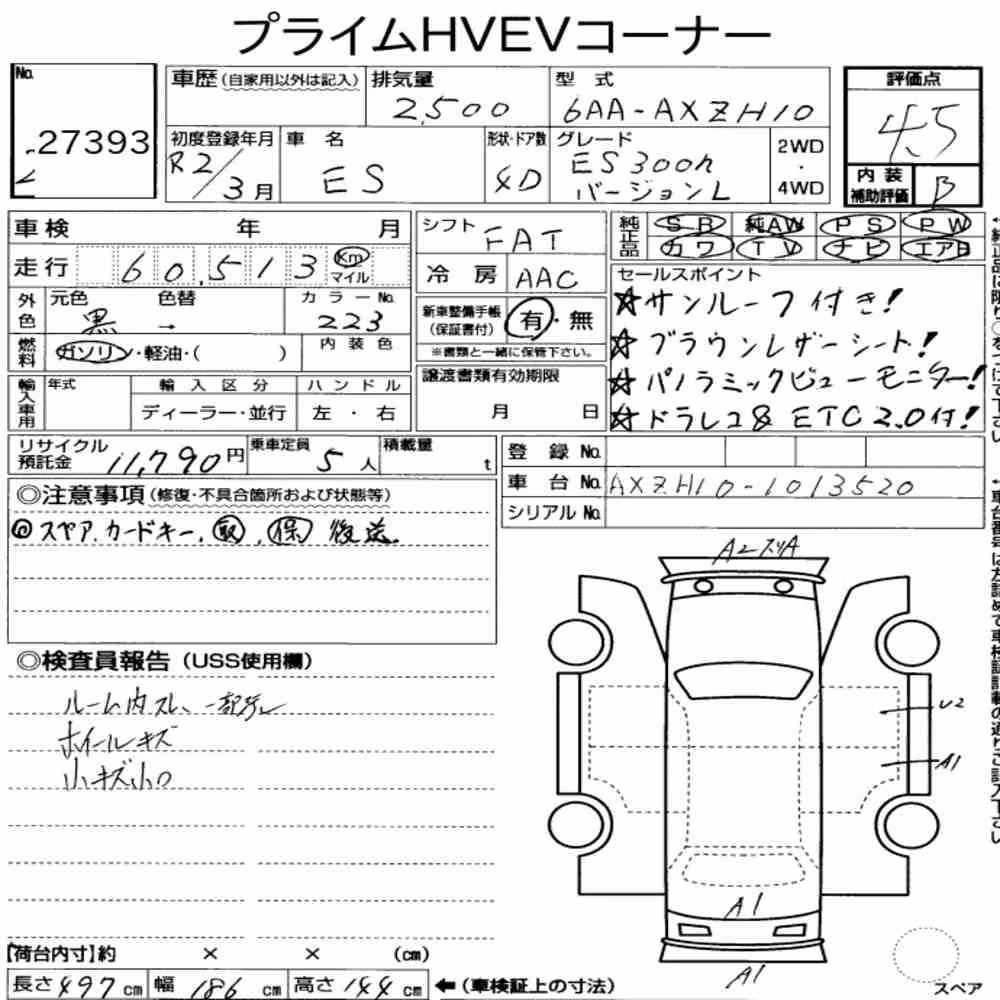 プライムHVEVコーナー
No.
27393
車歴（自家用以外は記入）
排気量
2,500
型式
6AA-AXZH10
評価点
4.5
初度登録年月
R2/3月
車名
ES
形状・ドア数
4D
グレード
ES300h
バージョンL
2WD
・
4WD
内装
補助評価
B
車検 年 月
走行 60,513 Km マイル
シフト
FAT
冷房 AAC
純正品
SR 純AW PS PW
カワ TV ナビ エアB
外色
元色 色替
黒 →
カラーNo.
223
燃料
ガソリン・軽油・( )
内装色
新車整備手帳
（保証書付）
有・無
※書類と一緒に保管下さい。
セールスポイント
☆サンルーフ付き!
☆ブラウンレザーシート!
☆パノラミックビューモニター!
☆ドラレコ& ETC2.0付!
輸入車用
年式
輸入区分
ディーラー・並行
ハンドル
左・右
譲渡書類有効期限
月 日
リサイクル
預託金
11,790円
乗車定員
5人
積載量
t
登録No.
車台No. AXZH10-1013520
シリアルNo.
◎注意事項（修復・不具合箇所および状態等）
◎スペア.カードキー. 取. 保 後送.
◎検査員報告（USS使用欄）
ルーム内スレ、一部汚レ
ホイールキズ
小キズ小凹
A2スリA
U2
A1
A1
A1
スペア
【荷台内寸】約 × × (cm)
長さ497cm 幅186cm 高さ144cm ←（車検証上の寸法）